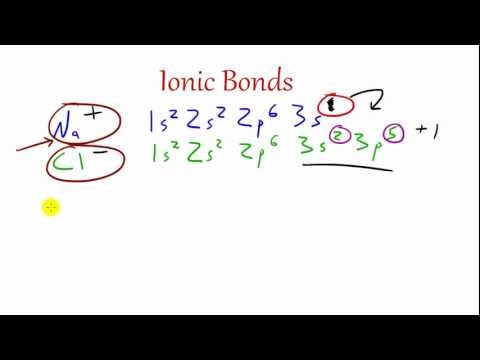 Ionic Bonds
Na⁺ 1s² 2s² 2p⁶ 3s¹
Cl⁻ 1s² 2s² 2p⁶ 3s² 3p⁵ +1